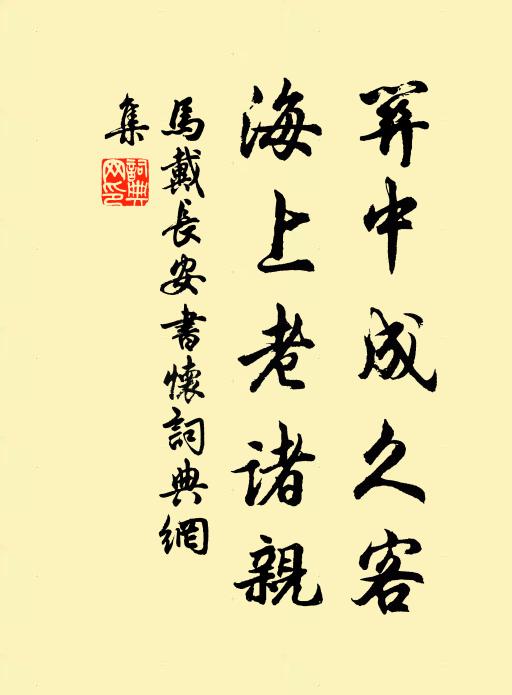 關中成久客
海上老诸親
馬戴長安書懷詞典網
集
詞典
网印